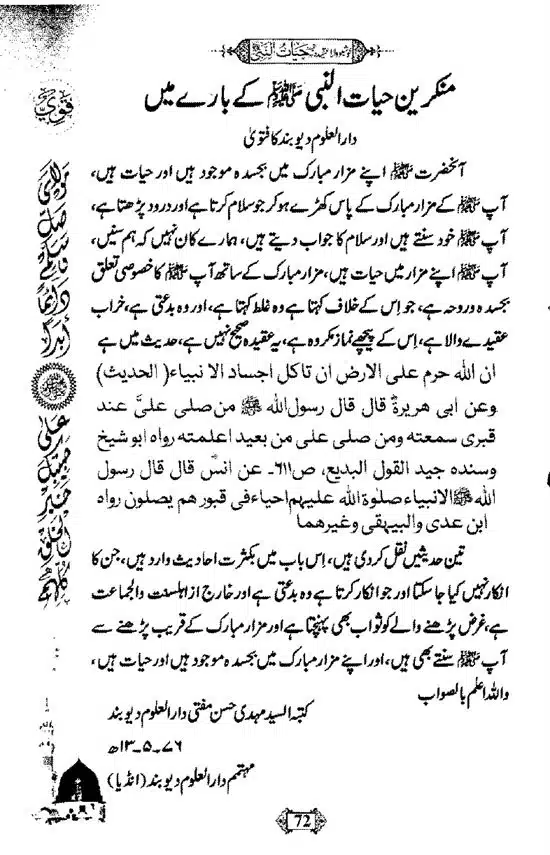 حیات النبی
منکرین حیات النبی ﷺ کے بارے میں
دارالعلوم دیوبند کا فتویٰ
آنحضرت ﷺ اپنے مزار مبارک میں بجسدہ موجود ہیں اور حیات ہیں،
آپ ﷺ کے مزار مبارک کے پاس کھڑے ہو کر جو سلام کرتا ہے اور درود پڑھتا ہے،
آپ ﷺ خود سنتے ہیں اور سلام کا جواب دیتے ہیں، ہمارے کان نہیں کہ ہم سنیں،
آپ ﷺ اپنے مزار میں حیات ہیں، مزار مبارک کے ساتھ آپ ﷺ کا خصوصی تعلق
بجسدہ وروحہ ہے، جو اِس کے خلاف کہتا ہے وہ غلط کہتا ہے، اور وہ بدعتی ہے، خراب
عقیدے والا ہے، اِس کے پیچھے نماز مکروہ ہے، یہ عقیدہ صحیح نہیں ہے، حدیث میں ہے
ان اللہ حرم علی الارض ان تاکل اجساد الا نبیاء( الحدیث)
وعن ابی ھریرۃؓ قال قال رسول اللہ ﷺ من صلی علیَّ عند
قبری سمعتہ ومن صلی علی من بعید اعلمتہ رواہ ابو شیخ
وسندہ جید القول البدیع، ص۱۱۶۔ عن انسؓ قال قال رسول
اللہ ﷺ الانبیاء صلوۃ اللہ علیہم احیاء فی قبور ھم یصلون رواہ
ابن عدی والبیہقی وغیرھما
تین حدیثیں نقل کر دی ہیں، اِس باب میں بکثرت احادیث وارد ہیں، جن کا
انکار نہیں کیا جا سکتا اور جو انکار کرتا ہے وہ بدعتی ہے اور خارج از اہلسنت والجماعت
ہے، غرض پڑھنے والے کو ثواب بھی پہنچتا ہے اور مزار مبارک کے قریب پڑھنے سے
آپ ﷺ سنتے بھی ہیں، اور اپنے مزار مبارک میں بجسدہ موجود ہیں اور حیات ہیں،
واللہ اعلم بالصواب
کتبہ السید مہدی حسن مفتی دارالعلوم دیوبند
۷۶۔۵۔۱۳ھ
مہتمم دارالعلوم دیوبند (انڈیا)
72
مولای صل وسلم دائما أبدا
علی حبیبک خیر الخلق کلهم